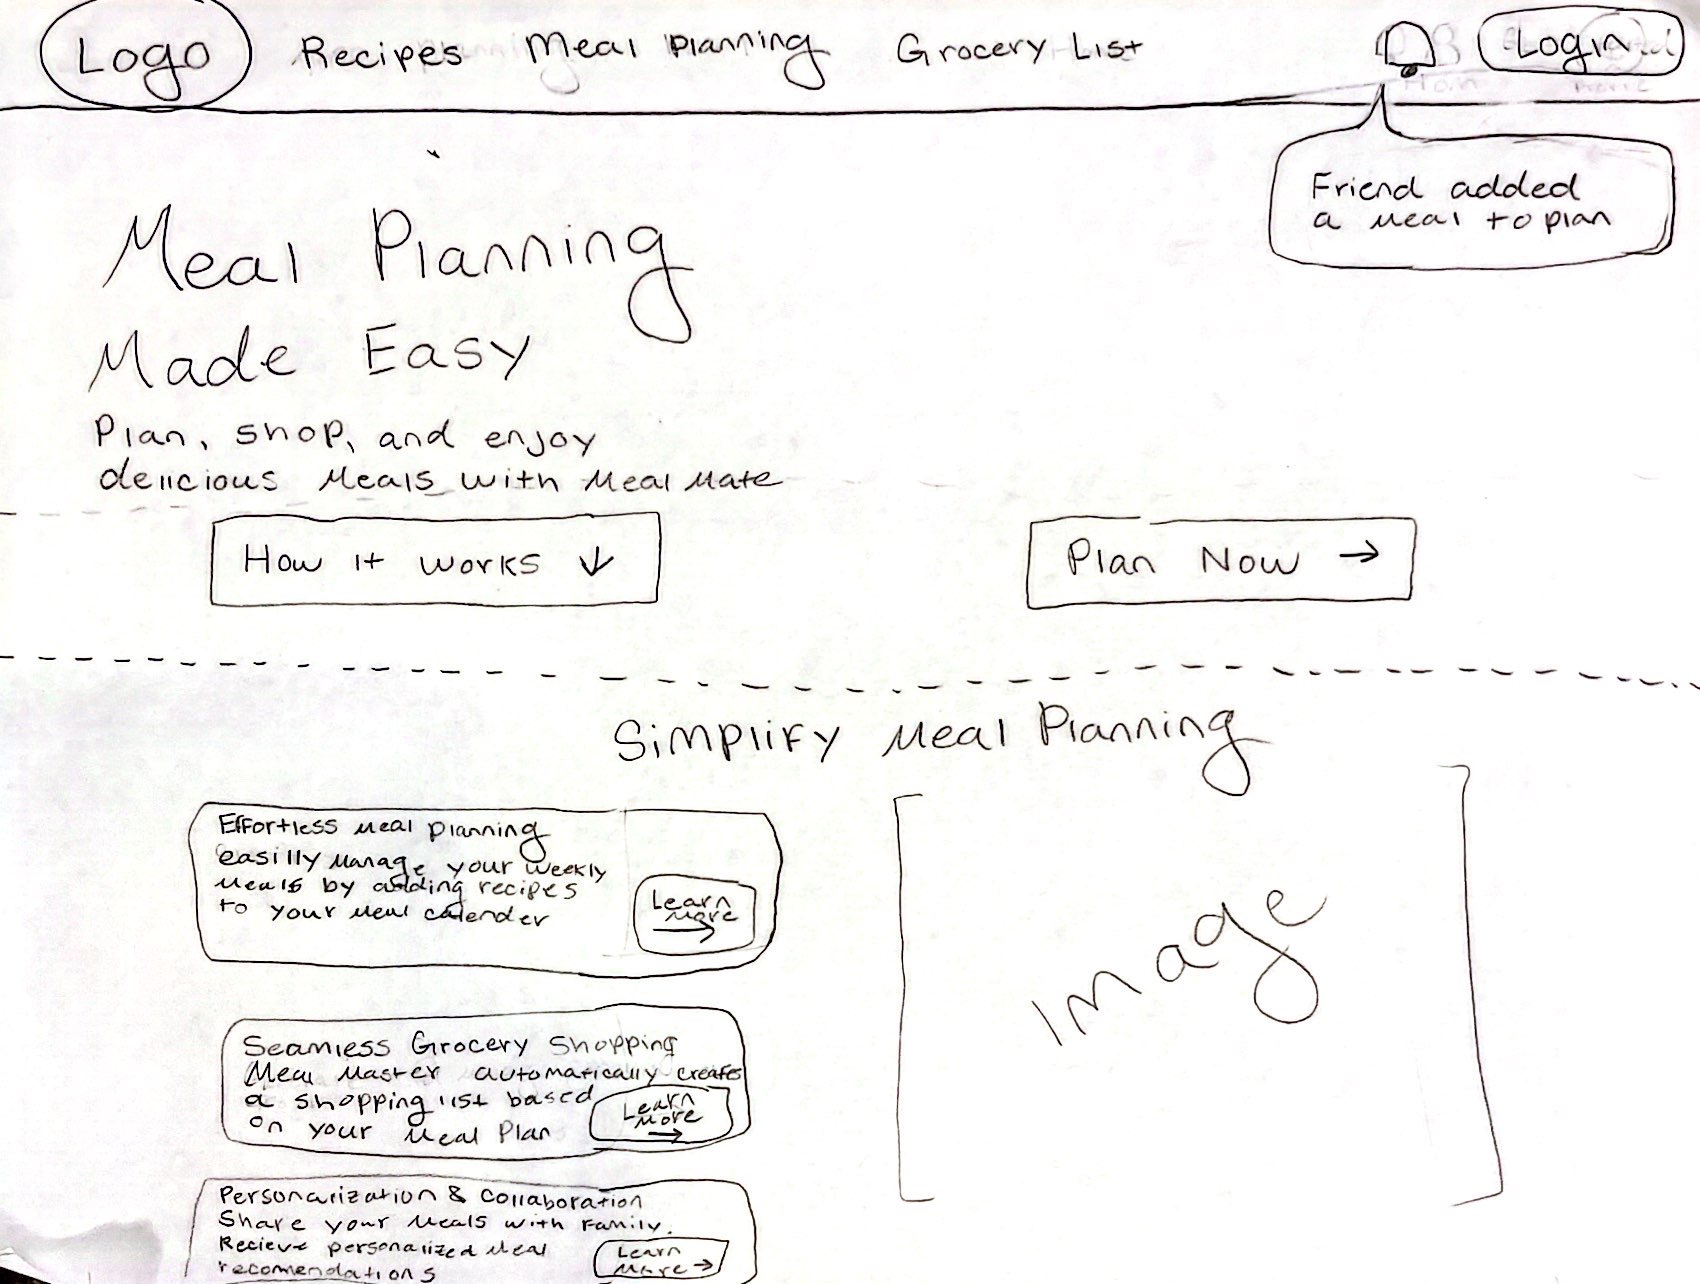 Logo Recipes Meal Planning Grocery List Login
Friend added
a meal to plan
Meal Planning
Made Easy
Plan, shop, and enjoy
delicious Meals with Meal Mate
How it works ↓
Plan Now →
Simplify Meal Planning
Effortless meal planning
easilly manage your weekly
meals by adding recipes
to your meal calender
Learn
more
→
Image
Seamless Grocery Shopping
Meal Master automatically creates
a shopping list based
on your Meal Plan
Learn
More
→
Personalization & Collaboration
Share your Meals with Family.
Recieve personalized Meal
recomendations
Learn
More →